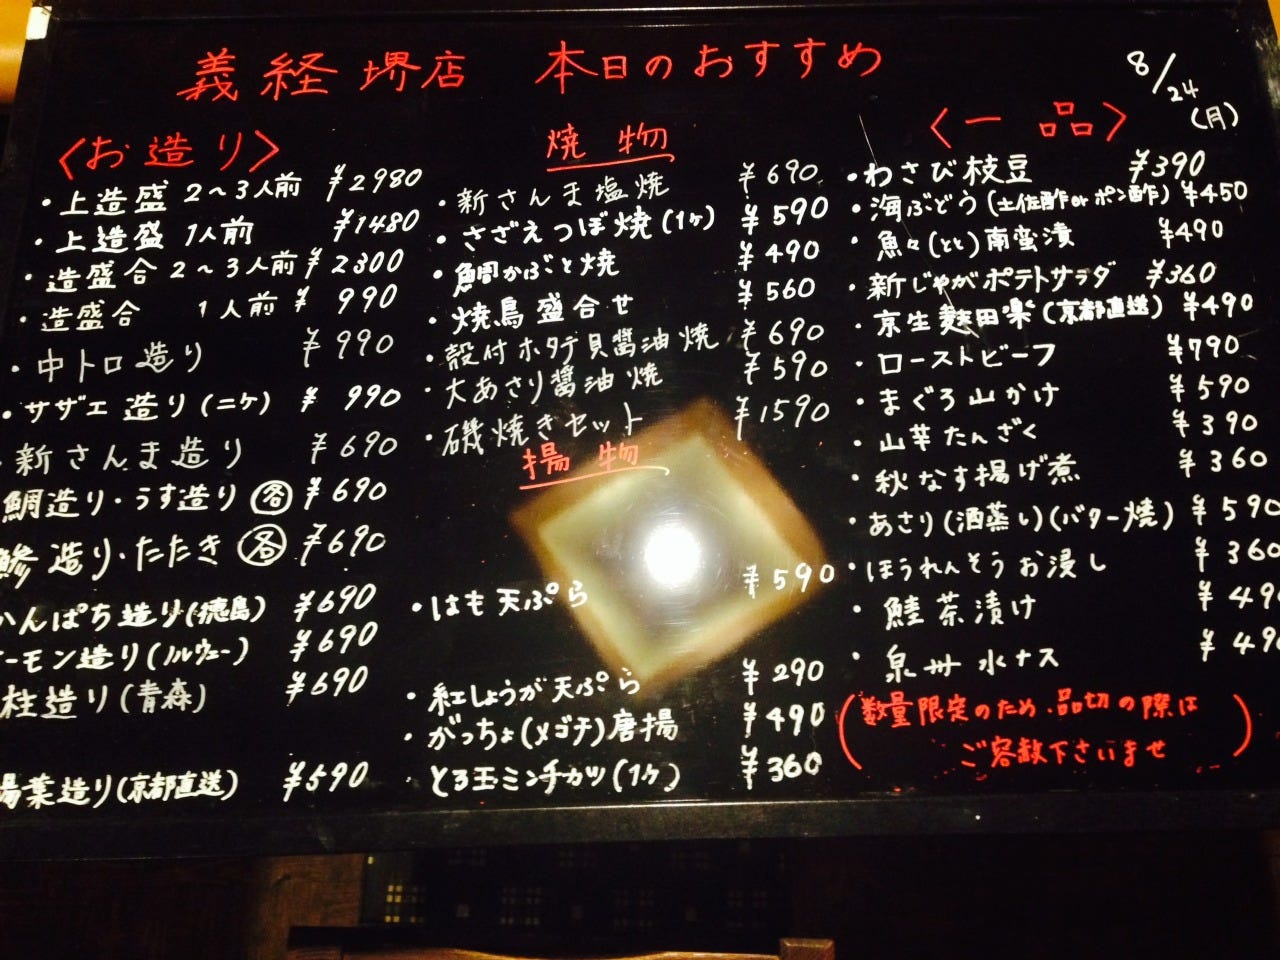 義経 堺店 本日のおすすめ
8/24(月)
〈お造り〉
・上造盛 2〜3人前 ¥2980
・上造盛 1人前 ¥1480
・造盛合 2〜3人前 ¥2300
・造盛合 1人前 ¥990
・中トロ造り ¥990
・サザエ造り(二ケ) ¥990
・新さんま造り ¥690
鯛造り・うす造り 各 ¥690
鯵造り・たたき 各 ¥690
かんぱち造り(徳島) ¥690
ーモン造り(ノルウェー) ¥690
柱造り(青森) ¥690
湯葉造り(京都直送) ¥590
焼物
・新さんま塩焼 ¥690
・さざえつぼ焼(1ヶ) ¥590
・鯛かぶと焼 ¥490
・焼鳥盛合せ ¥560
・殻付ホタテ貝醤油焼 ¥690
・大あさり醤油焼 ¥590
・磯焼きセット ¥1590
揚物
・はも天ぷら ¥590
・紅しょうが天ぷら ¥290
・がっちょ(メゴチ)唐揚 ¥490
・とろ玉ミンチカツ(1ヶ) ¥360
〈一品〉
・わさび枝豆 ¥390
・海ぶどう(土佐酢orポン酢) ¥450
・魚々(とと)南蛮漬 ¥490
・新じゃがポテトサラダ ¥360
・京生麩田楽(京都直送) ¥490
・ローストビーフ ¥790
・まぐろ山かけ ¥590
・山芋たんざく ¥390
・秋なす揚げ煮 ¥360
・あさり(酒蒸し)(バター焼) ¥590
・ほうれんそうお浸し ¥360
・鮭茶漬け ¥490
・泉州水ナス ¥490
(数量限定のため、品切の際は
ご容赦下さいませ)